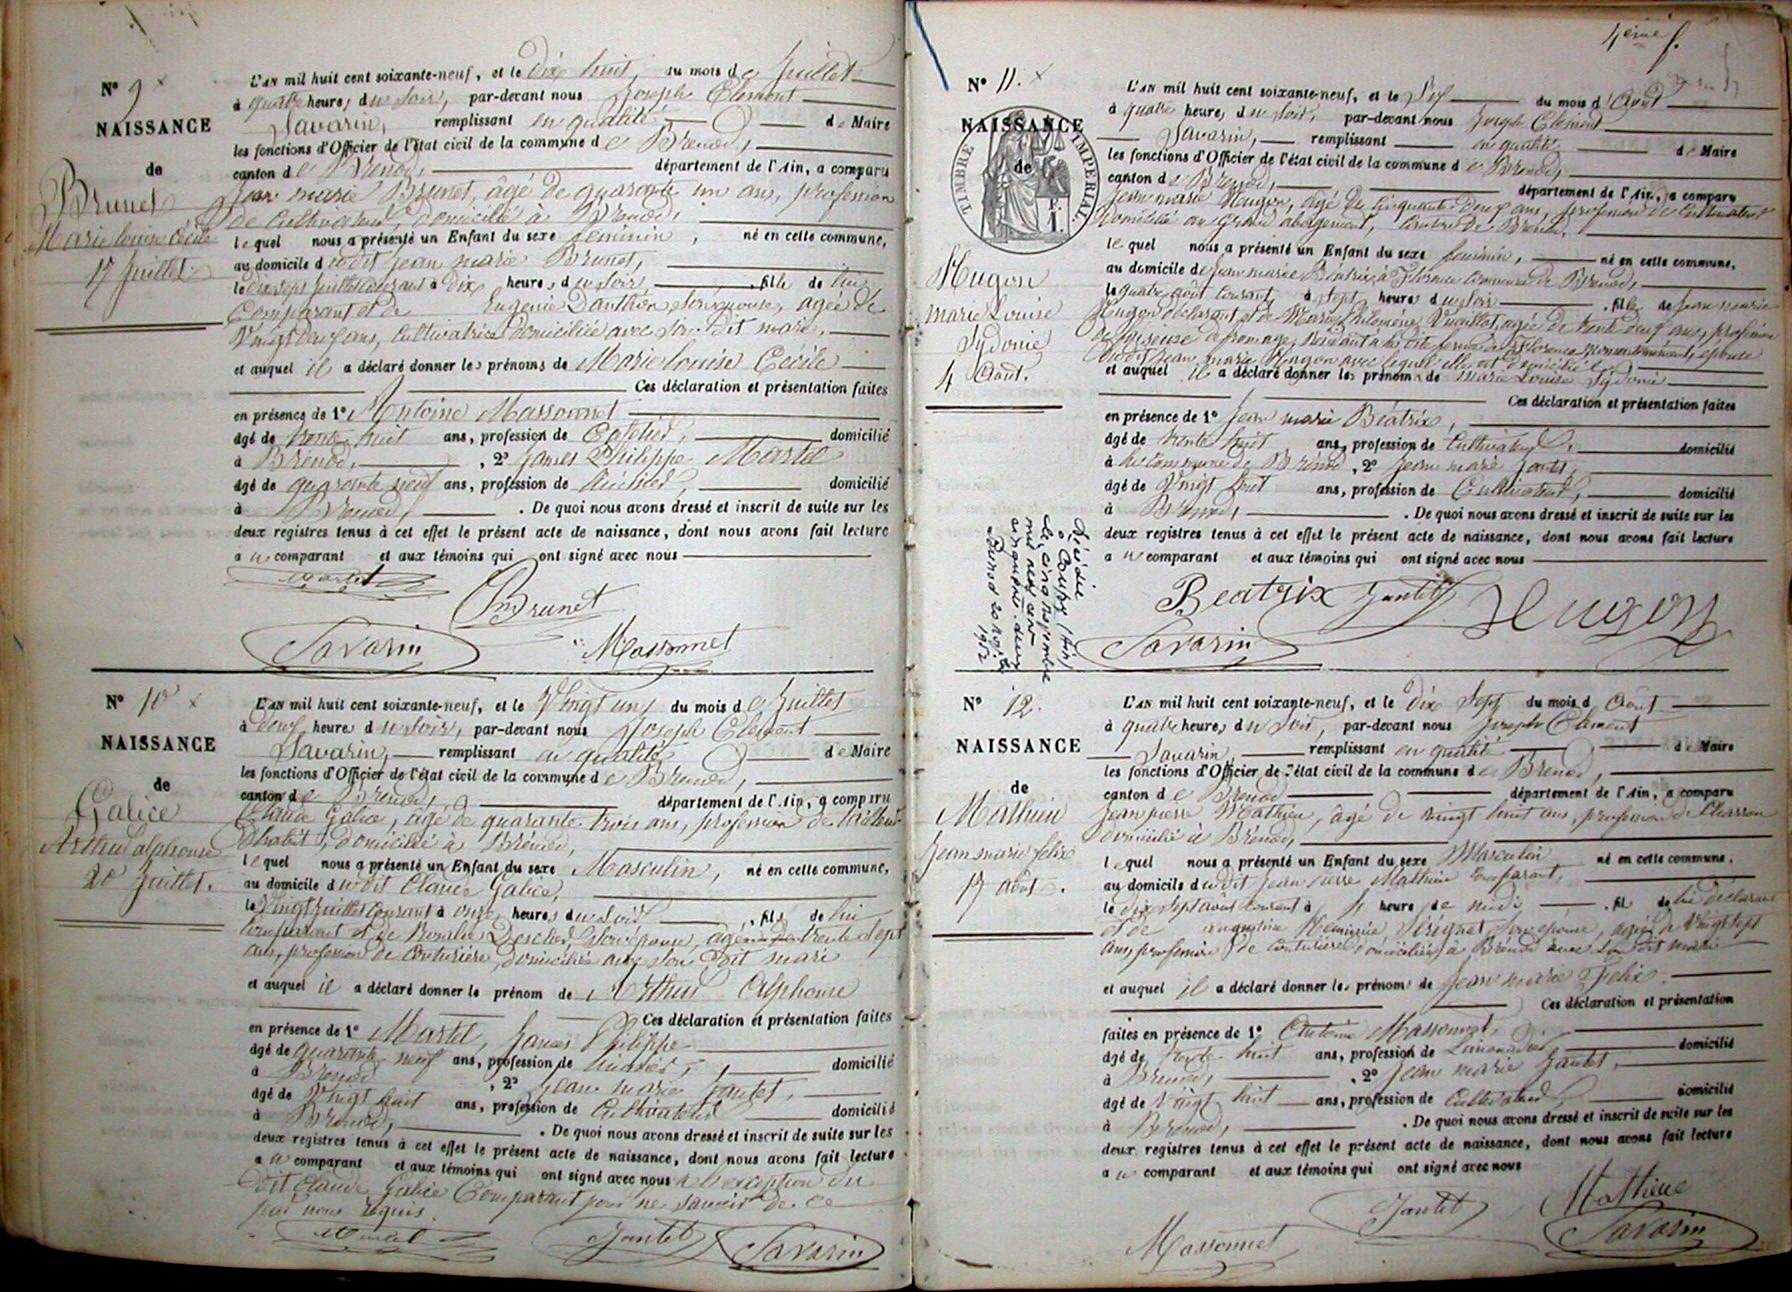 N° 9
NAISSANCE
de
Brunet
Marie louise Cécile
17 Juillet.
L'AN mil huit cent soixante-neuf, et le Dix huit, du mois de Juillet
à quatre heures du soir, par-devant nous Joseph Clément
Savarin, remplissant en qualité de Maire
les fonctions d'Officier de l'état civil de la commune de Brenod,
canton de Brenod, département de l'Ain, a comparu
Jean marie Brunet, âgé de quarante un ans, profession
de Cultivateur, domicilié à Brenod,
lequel nous a présenté un Enfant du sexe féminin, né en cette commune,
au domicile dudit Jean marie Brunet,
le dix sept juillet courant à dix heures du soir, fille de lui
Comparant et de Eugénie Danthon, son épouse, agée de
Vingt ans, Cultivatrice domiciliée avec son dit mari.
et auquel il a déclaré donner les prénoms de Marie louise Cécile
Ces déclaration et présentation faites
en présence de 1° Antoine Massonnet
âgé de trente huit ans, profession de Cafetier, domicilié
à Brenod, , 2° James Philippe Martel
âgé de quarante neuf ans, profession de huissier, domicilié
à Brenod, . De quoi nous avons dressé et inscrit de suite sur les
deux registres tenus à cet effet le présent acte de naissance, dont nous avons fait lecture
au comparant et aux témoins qui ont signé avec nous
Martel
Brunet
Savarin Massonnet
N° 10
NAISSANCE
de
Galice
Arthur alphonse
20 Juillet.
L'AN mil huit cent soixante-neuf, et le Vingt un du mois de Juillet
à deux heures du soir, par-devant nous Joseph Clément
Savarin, remplissant en qualité de Maire
les fonctions d'Officier de l'état civil de la commune de Brenod,
canton de Brenod, département de l'Ain, a comparu
Claude Galice, âgé de quarante trois ans, profession de tailleur
d'habits, domicilié à Brénod,
lequel nous a présenté un Enfant du sexe Masculin, né en cette commune,
au domicile dudit Claude Galice,
le Vingt juillet courant à onze heures du soir, fils de lui
Comparant et de Rosalie son épouse, agée de trente sept
ans, profession de couturière, domiciliée avec son dit mari
et auquel il a déclaré donner le prénom de Arthur Alphonse
Ces déclaration et présentation faites
en présence de 1° Martel, James Philippe
âgé de quarante neuf ans, profession de huissier, domicilié
à Brenod , 2° Jean marie Jantet,
âgé de Vingt huit ans, profession de Cultivateur domicilié
à Brénod, . De quoi nous avons dressé et inscrit de suite sur les
deux registres tenus à cet effet le présent acte de naissance, dont nous avons fait lecture
au comparant et aux témoins qui ont signé avec nous à l'exception du
dit Claude Galice Comparant pour ne savoir de ce
par nous requis.
Martel Jantet Savarin
4ème f.
N° 11.
NAISSANCE
de
TIMBRE IMPÉRIAL.
Hugon
marie Louise
Sydonie
4 Août.
L'AN mil huit cent soixante-neuf, et le Six du mois d'Août
à quatre heures du soir, par-devant nous Joseph Clément
Savarin, remplissant en qualité de Maire
les fonctions d'Officier de l'état civil de la commune de Brenod,
canton de Brenod, département de l'Ain, a comparu
Jean marie Hugon, âgé de Cinquante deux ans, profession de Cultivateur
domicilié au grand abergement, Canton de Brénod,
lequel nous a présenté un Enfant du sexe féminin, né en cette commune,
au domicile de Jean marie Béatrix, à Florence Commune de Brénod,
le quatre août courant, à sept heures du soir fille de Jean marie
Hugon déclarant et de Marie philomène Vuaillat, agée de trente ans, profession
de faiseuse de fromage, épouse
dudit Jean marie Hugon avec lequel elle est domiciliée
et auquel il a déclaré donner les prénoms de marie Louise Sydonie
Ces déclaration et présentation faites
en présence de 1° Jean marie Béatrix,
âgé de trente huit ans, profession de Cultivateur, domicilié
à la Commune de Brénod , 2° Jean marie Jantet,
âgé de Vingt huit ans, profession de Cultivateur, domicilié
à Brénod, . De quoi nous avons dressé et inscrit de suite sur les
deux registres tenus à cet effet le présent acte de naissance, dont nous avons fait lecture
au comparant et aux témoins qui ont signé avec nous
Béatrix Jantet Hugon
Savarin
Décédée
à Corcy (Ain)
le cinq novembre
mil neuf cent
cinquante-deux
Brenod 20 1952
N° 12.
NAISSANCE
de
Mathieu
Jean marie félix
17 Août.
L'AN mil huit cent soixante-neuf, et le dix Sept du mois d'Août
à quatre heures du soir, par-devant nous Joseph Clément
Savarin, remplissant en qualité de Maire
les fonctions d'Officier de l'état civil de la commune de Brenod,
canton de Brenod département de l'Ain, a comparu
Jean pierre Mathieu, âgé de vingt huit ans, profession de Charron
domicilié à Brénod,
lequel nous a présenté un Enfant du sexe Masculin né en cette commune,
au domicile dudit Jean pierre Mathieu comparant,
le dix sept août courant à heure de midi fils de lui déclarant
et de augustine Sérignat son épouse, agée de vingt sept
ans, profession de couturière domiciliée à Brénod avec son dit mari
et auquel il a déclaré donner les prénoms de Jean marie Félix.
Ces déclaration et présentation
faites en présence de 1° Antoine Massonnet,
âgé de trente huit ans, profession de Limonadier domicilié
à Brenod, , 2° Jean marie Jantet,
âgé de Vingt huit ans, profession de Cultivateur, domicilié
à Brénod, . De quoi nous avons dressé et inscrit de suite sur les
deux registres tenus à cet effet le présent acte de naissance, dont nous avons fait lecture
au comparant et aux témoins qui ont signé avec nous
Massonnet Jantet Mathieu
Savarin